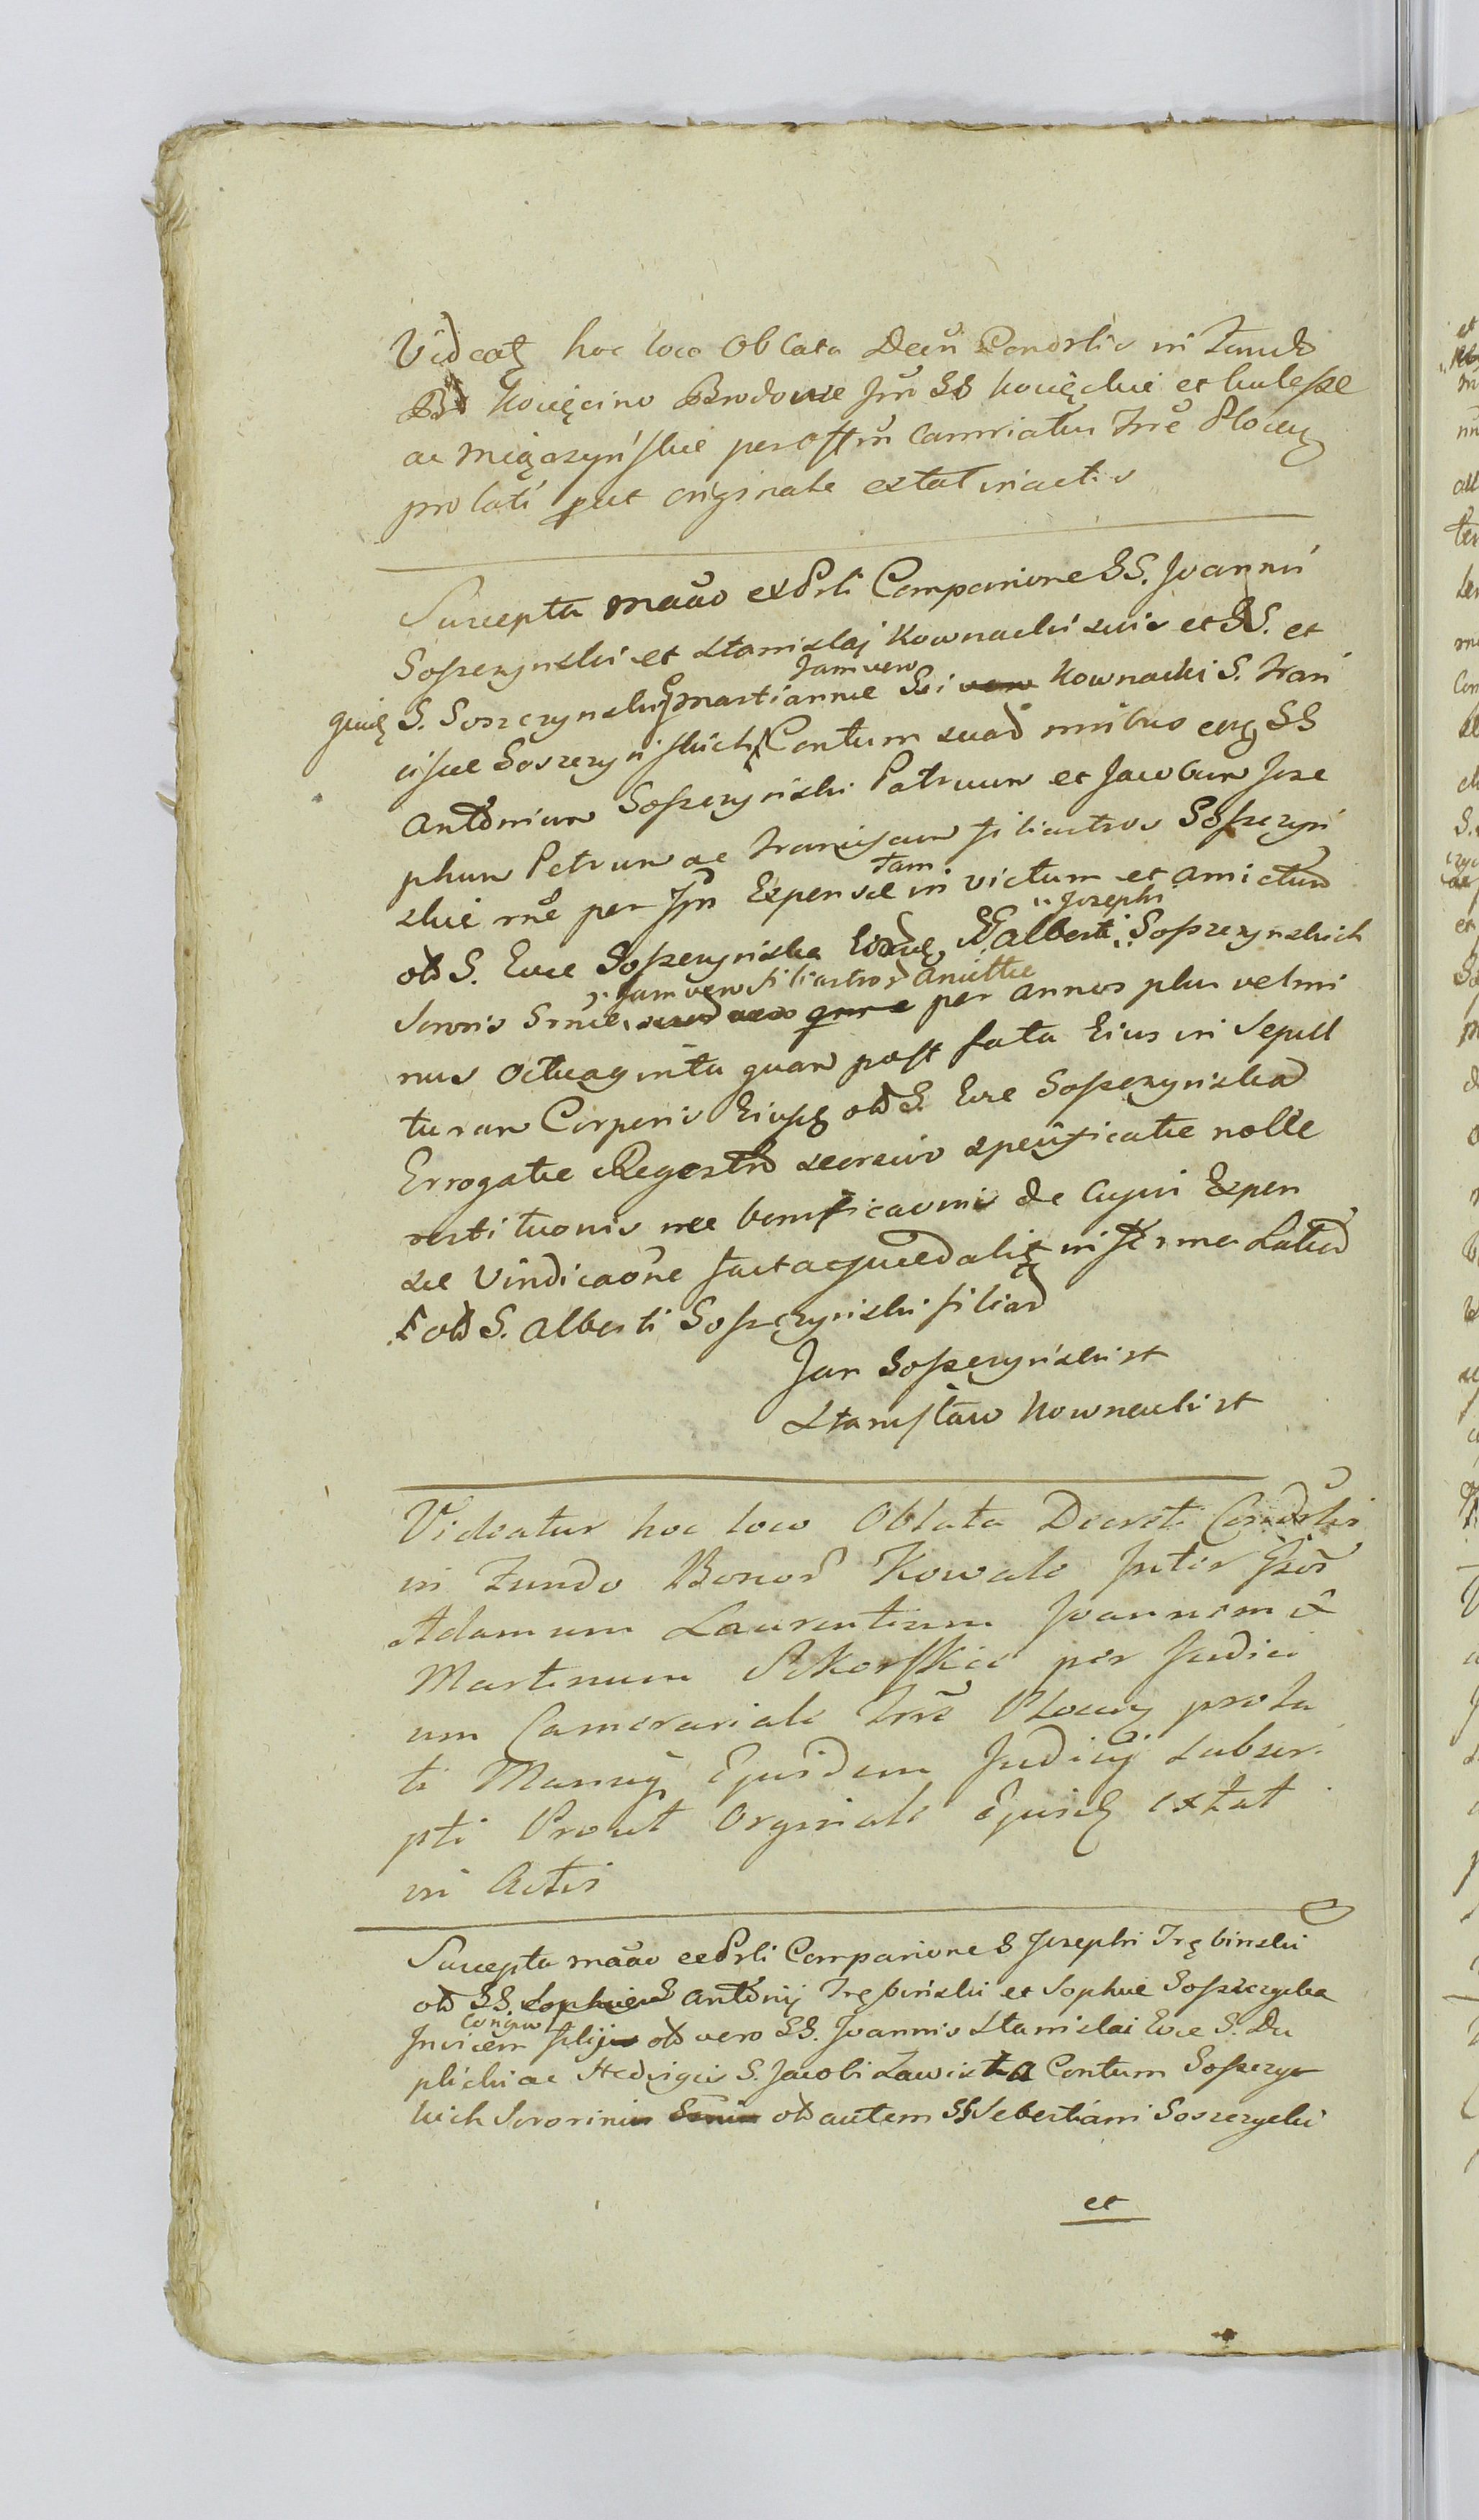 Videatz hoc loco Oblata Decri Condrlis in Fundo
Bd Kowięcino Brodowe Jnr SS Kowięckie et Kulesze
ac Miączyńskie per Offm Camriatus Trre Plocen
prolati put originale extat in actis
Suscepta maõ ex Prli Comparione SS. Joannis
Soszczynski et Stanislaj Kownacki suis et SS. et
quidz S. Soszczynski Martiannae Sei Jam vero Kownacki S. Fran
ciscae Soszczynskich Contum suad nnibus eorz SS
Antonium Soszczynski Patruum et Jacobum Jose
phum Petrum ac Franciscum filiastros Soszczyn
skie rne per Jpn Expensae tam in victum et amictum
od S. Evae Soszczynska Eorund SS Alberti Josephi Soszczynskich
Sororis Srnae Jam vero filiastror Amittae per annos plus vel mi
nus Octuaginta quam post fata Eius in Sepul
turam Corporis Eiusz od S. Evae Soszczynska
Errogatae Regestro seorsivo specificatae nolle
restituonis nec bonificaonis de Cujus Expen
sae Vindicaone facta
od S. Alberti Soszczynski filiar
Jan Soszczyński st
Stanisław Kownacki st
Videatur hoc loco Oblata Decreti Condrlis
in Fundo Bonor Kowale Inter Gsos
Adamum Laurentium Joannem et
Martinum Sikorskie per Judici
um Camerariale Trre Plocen prola
ti Manuq Ejusdem Judicij subscri
pti Prout Orginale Ejusd extat
in Actis
Suscepta maõ ex Prli Comparione S Josephi Trębinski
od SS. Antonij Trębiński et Sophiae Soszczycka
Invicem Conjugu filij od vero SS. Joannis Stanislai Evae S. Du
plicki ac Hedvigis S. Jacobi Zawistą Contum Soszczyc
kich Sororini od autem SS Sebestiani Soszczycki
et